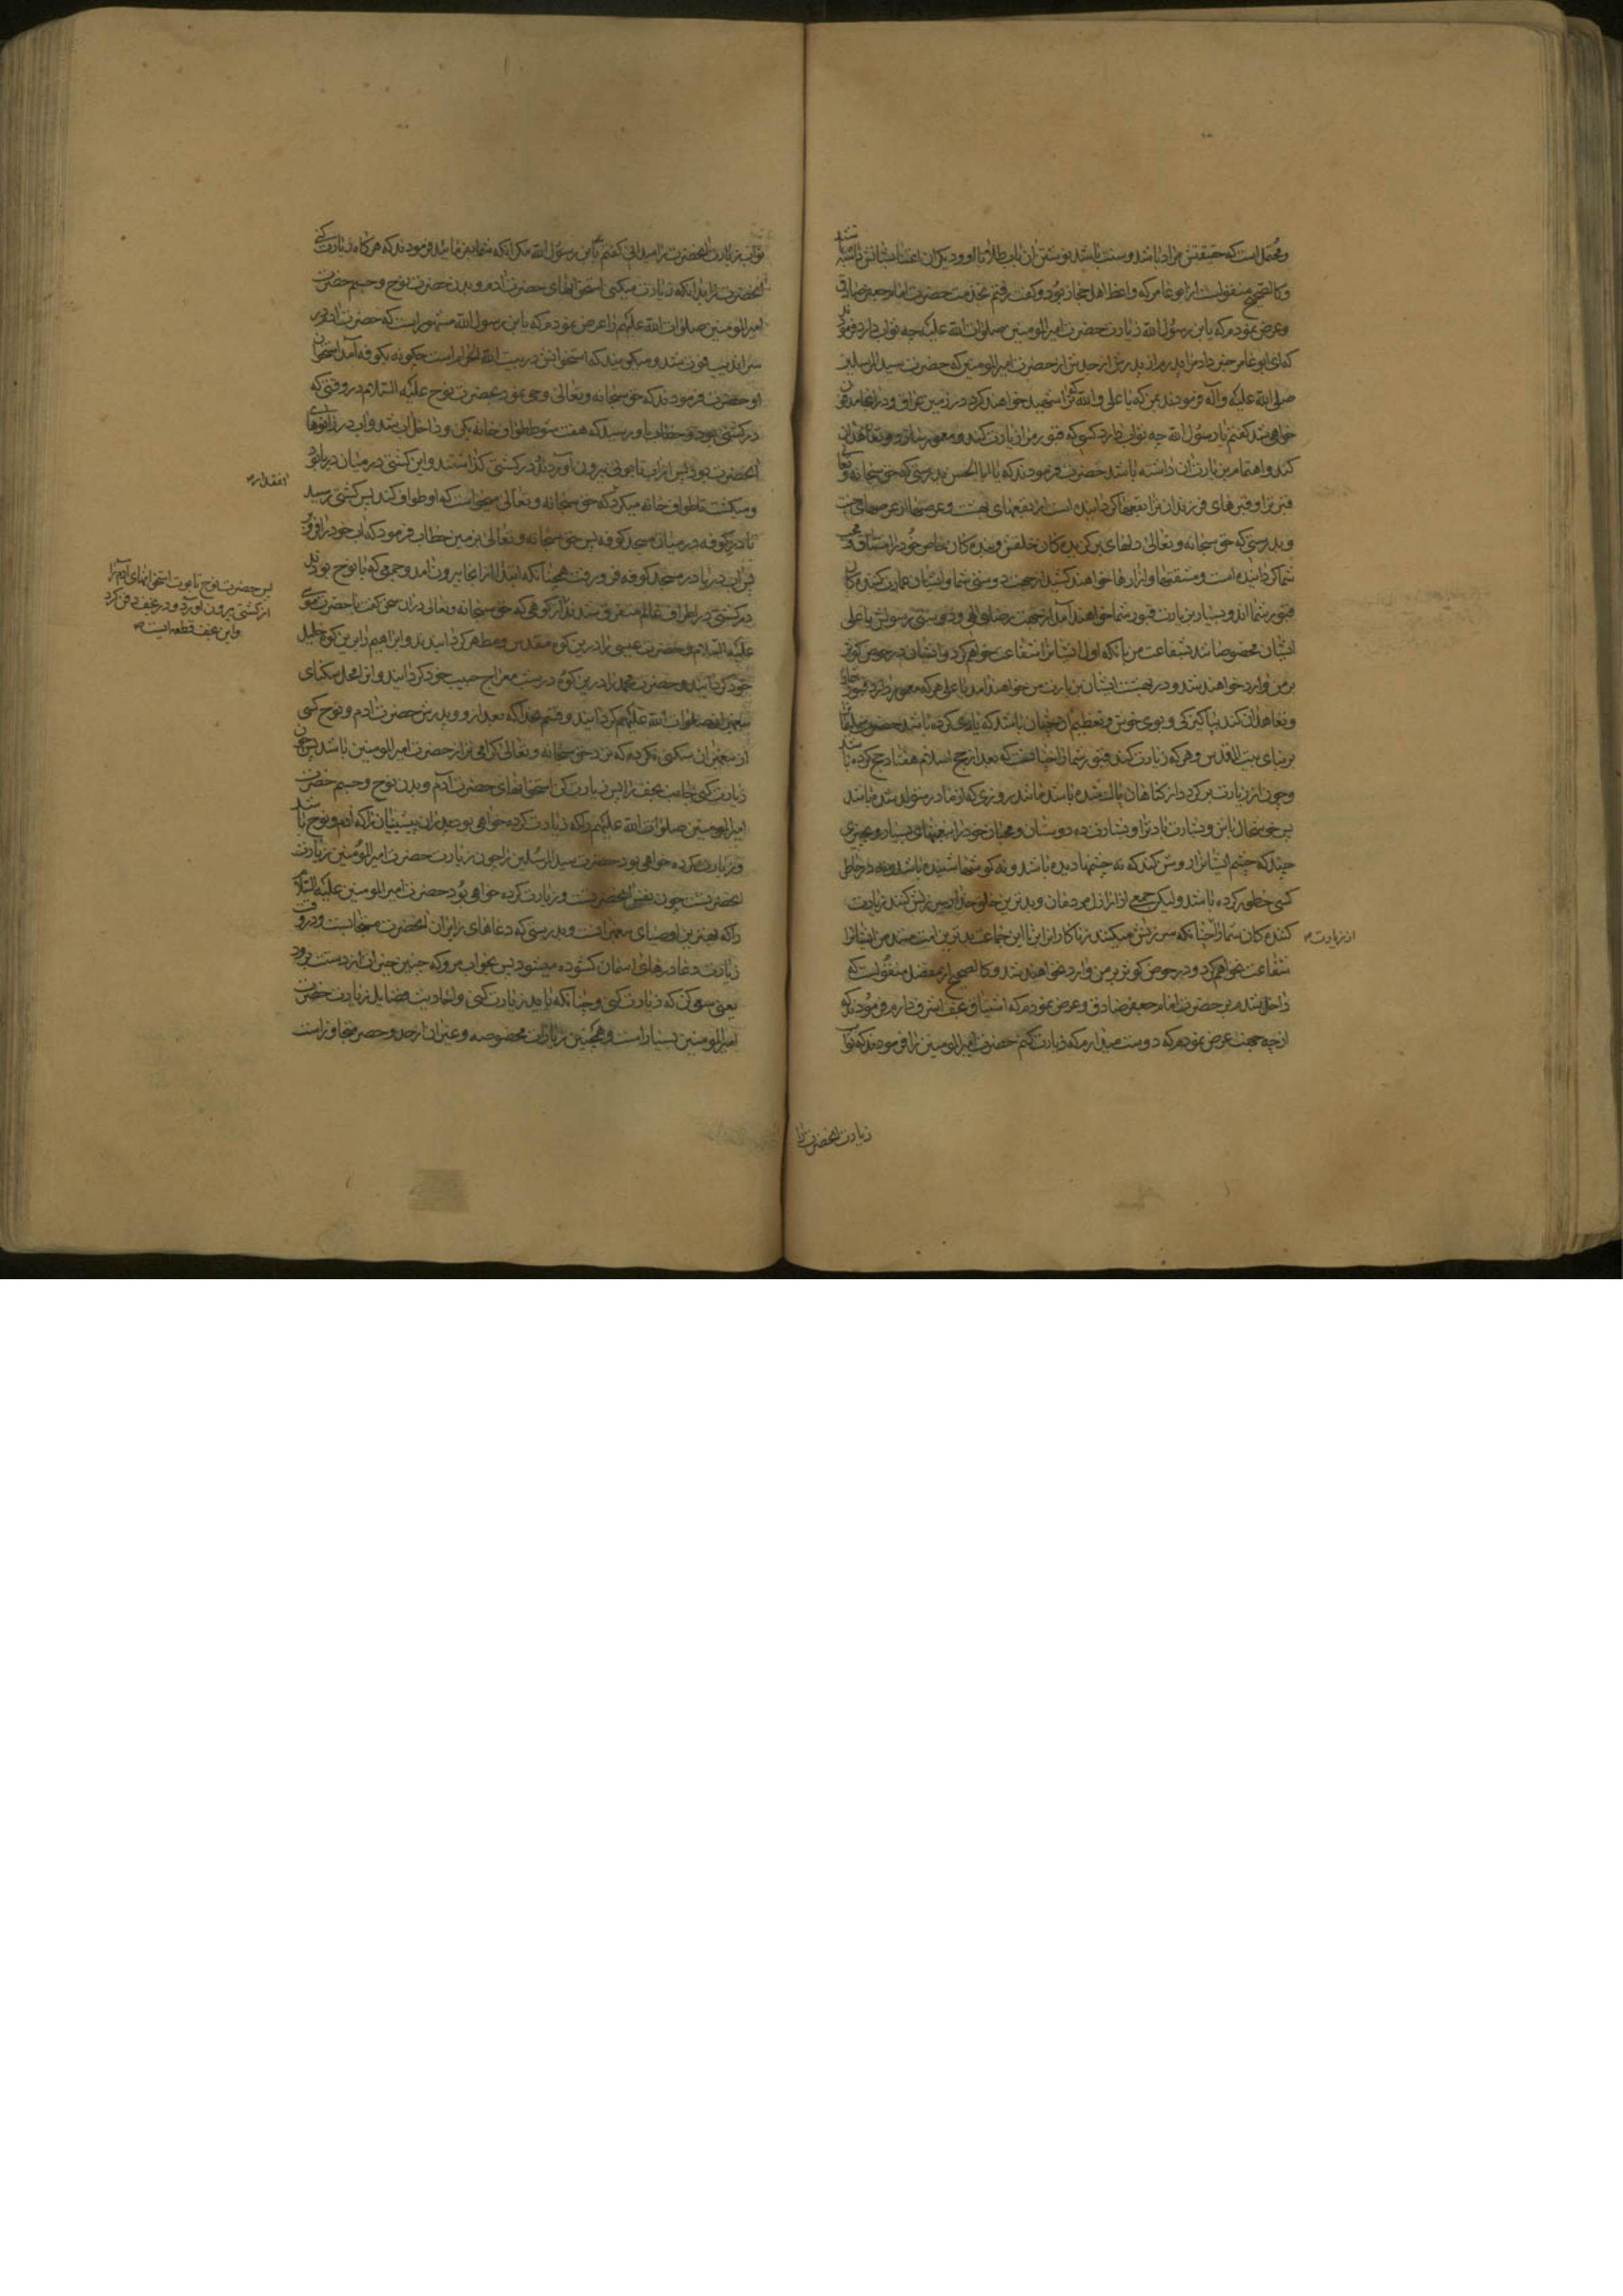 و محتملست که حقیقتش مراد باشد و سنت باشد نوشتن آن بآب طلا تا او و دیگران اعتنا بشانش داشته باشند
و کالصحیح منقولست از ابو عامر که واعظ اهل حجاز بود و گفت رفتم بخدمت حضرت امام جعفر صادق
و عرض نمودم که یا بن رسول الله زیارت حضرت امیرالمومنین صلوات الله علیه چه ثواب دارد فرمودند
که ای ابو عامر خبر داد مرا پدرم از پدرش از جدش از حضرت امیرالمومنین که حضرت سید المرسلین
صلی الله علیه و آله فرمودند بمن که یا علی والله که ترا شهید خواهند کرد در زمین عراق و در انجا مدفون
خواهی شد گفتم یا رسول الله چه ثواب دارد کسی که قبور ما را زیارت کند و معمور سازد و تعاهد آن
کند و اهتمام بزیارت آن داشته باشد حضرت فرمودند که یا ابا الحسن بدرستی که حق سبحانه و تعالی
قبر ترا و قبرهای فرزندان ترا بقعها گردانیده است از بقعهای بهشت و عرصها از عرصهای جنت
و بدرستی که حق سبحانه و تعالی دلهای برگزیدگان خلقش و بندگان خاص خود را مشتاق و محب
شما گردانیده است و مشقتها و ازارها خواهند کشید از جهت دوستی شما و ایشان عمارت کنندگان
قبور شما اند و بسیار بزیارت قبور شما خواهند آمد از جهت رضای الهی و دوستی رسولش یا علی
ایشان مخصوصانند بشفاعت من بانکه اول ایشانرا شفاعت خواهم کرد و ایشان در حوض کوثر
بر من وارد خواهند شد و در بهشت ایشان بزیارت من خواهند آمد یا علی هر که معمور دارد قبور شما را
و تعاهد آن کند بپاکیزگی و بوی خوش و تعظیم آن چنان باشد که یاری کرده باشد حضرت سلیمان را
بر بنای بیت المقدس و هر که زیارت کند قبور شما را چنانست که بعد از حج اسلام هفتاد حج کرده باشد
و چون از زیارت برگردد از گناهان پاک شده باشد مانند روزی که از مادر متولد شده باشد
پس خوشحال باش و بشارت باد ترا و بشارت ده دوستان و محبان خود را بنعمتهای بسیار و بچیزی
چند که چشم ایشانرا روشن کند که نه چشمها دیده باشد و نه گوشها شنیده باشد و نه در خاطر
کسی خطور کرده باشد ولیکن جمعی از اراذل مردمان و بدترین خلق خدا سرزنش کنند زیارت
کنندگان شما را چنانکه سرزنش میکنند زناکارانرا این جماعت بدترین امت منند من ایشانرا
از زیارت
شفاعت نخواهم کرد و در حوض کوثر بر من وارد نخواهند شد و کالصحیح از مفضل منقولست که
داخل شدم بر حضرت امام جعفر صادق و عرض نمودم که اشتیاق نجف اشرف دارم فرمودند که
از چه جهت عرض نمودم که دوست میدارم که زیارت کنم حضرت امیرالمومنین را فرمودند که ثواب
زیارت انحضرت را
ثواب زیارت انحضرت را میدانی گفتم نه یا بن رسول الله مگر آنکه شما بفرمائید فرمودند که هر گاه زیارت کنی
انحضرت را بدانکه زیارت میکنی استخوانهای حضرت آدم و بدن حضرت نوح و جسم حضرت
امیرالمومنین صلوات الله علیهم را عرض نمودم که یا بن رسول الله مشهور است که حضرت آدم در
سراندیب فوت شد و میگویند که استخوانش در بیت الله الحرام است چگونه بکوفه آمد استخوان
او حضرت فرمودند که حق سبحانه و تعالی وحی نمود بحضرت نوح علیه السلام در وقتی که
در کشتی بود و خطاب باو رسید که هفت شوط طواف خانه بکن و داخل آب شد و آب در زانوهای
انحضرت بود پس از آب تابوتی بیرون آورد و در کشتی گذاشتند و این کشتی در میان دریا بود
و میگشت تا طواف خانه میکرد که حق سبحانه و تعالی میخواست که او طواف کند پس کشتی رسید
تا در کوفه در میان مسجد کوفه پس حق سبحانه و تعالی بزمین خطاب فرمود که آب خود را فرو بر
پس آن دریا در مسجد کوفه فرو رفت همچنانکه ابتدا از انجا بیرون آمد و جمعی که با نوح بودند
در کشتی در اطراف عالم متفرق شدند از کوهی که حق سبحانه و تعالی در آن سخن گفت با حضرت موسی
علیه السلام و حضرت عیسی را درین کوه مقدس و مطهر گردانیدند و ابراهیم را برین کوه خلیل
خود گردانید و حضرت محمد را درین کوه در شب معراج حبیب خود گردانید و انرا محل سکنای
پیغمبران صلوات الله علیهم گردانید و قسم بخدا که بعد از دو پدرش حضرت آدم و نوح کسی
از پیغمبران سکنی نکرده که نزد حق سبحانه و تعالی گرامی تر از حضرت امیرالمومنین باشد پس چون
زیارت کنی جانب نجف را پس زیارت کن استخوانهای حضرت آدم و بدن نوح و جسم حضرت
امیرالمومنین صلوات الله علیهم را که زیارت کرده خواهی بود پدران پیشینیان را که آدم و نوح باشند
و زیارت کرده خواهی بود حضرت سید المرسلین را چون زیارت حضرت امیرالمومنین زیارت
انحضرتست چون نفس انحضرتست و زیارت کرده خواهی بود حضرت امیرالمومنین علیه السلام
را که بهترین اوصیای پیغمبرانست و بدرستی که دعاهای زایران انحضرت مستجابست و در وقت
زیارت و دعا درهای آسمان گشوده میشود پس بخواب مرو که چنین خیر از دست برود
یعنی سعی کن که زیارت کنی و چنانکه باید زیارت کنی و احادیث فضایل زیارت حضرت
امیرالمومنین بسیار است و همچنین زیارات مخصوصه و غیر آن از حد و حصر متجاوز است
انقدر
پس حضرت نوح تابوت استخوانهای آدم را
از کشتی بیرون آورد و در نجف دفن کرد
و این نجف قطعه ایست